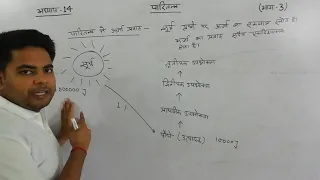 अध्याय-14 पारितन्त्र (भाग-3)
पारितन्त्र में ऊर्जा प्रवाह - सूर्य पृथ्वी पर ऊर्जा का एकमात्र स्रोत है।
ऊर्जा का प्रवाह सदैव एकदिशीय
होता है।
सूर्य
तृतीयक उपभोक्ता
द्वितीयक उपभोक्ता
प्राथमिक उपभोक्ता
पौधे (उत्पादक) 10000J